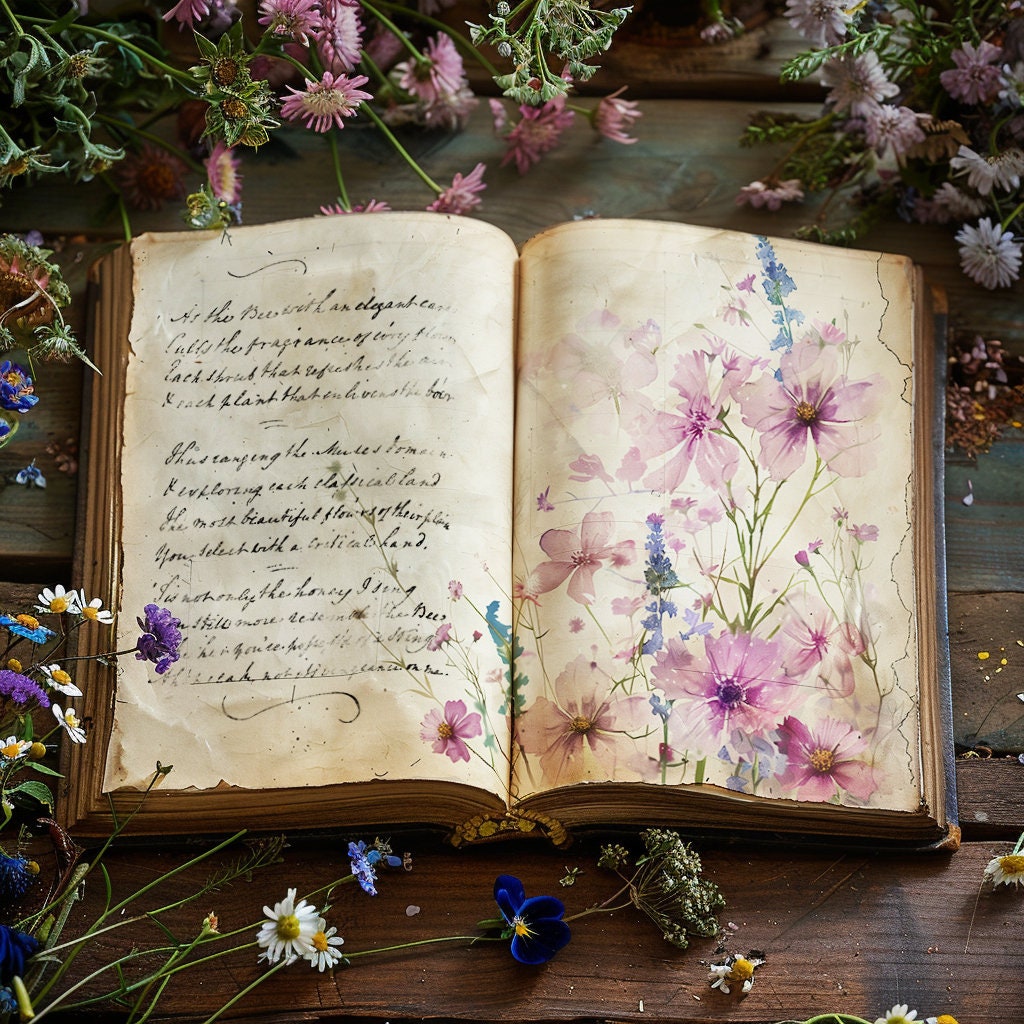 As the Bee with an elegant care
Culls the fragrance of every flower
Each shrub that refreshes the air
& each plant that enlivens the bow'r
Thus ranging the Muses Domain
& exploring each classical land
The most beautiful flow'rs of their plain
You select with a critical hand.
'Tis not only the honey I sing
still more resemble the Bee
of a Sting
not